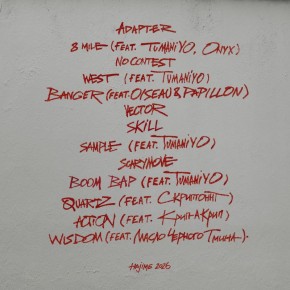 ADAPTER
8 MILE (FEAT. TUMANIYO, ONYX)
NO CONTEST
WEST (FEAT. TUMANIYO)
BANGER (FEAT. OISEAU & PAPILLON)
VECTOR
SKILL
SAMPLE (FEAT. TUMANIYO)
SCARY MOVE
BOOM BAP (FEAT. TUMANIYO)
QUARTZ (FEAT. СКРИПТОНИТ)
ACTION (FEAT. КРИПАКРИП)
WISDOM (FEAT. МАСЛО ЧЕРНОГО ТМИНА).
HAJIME 2025